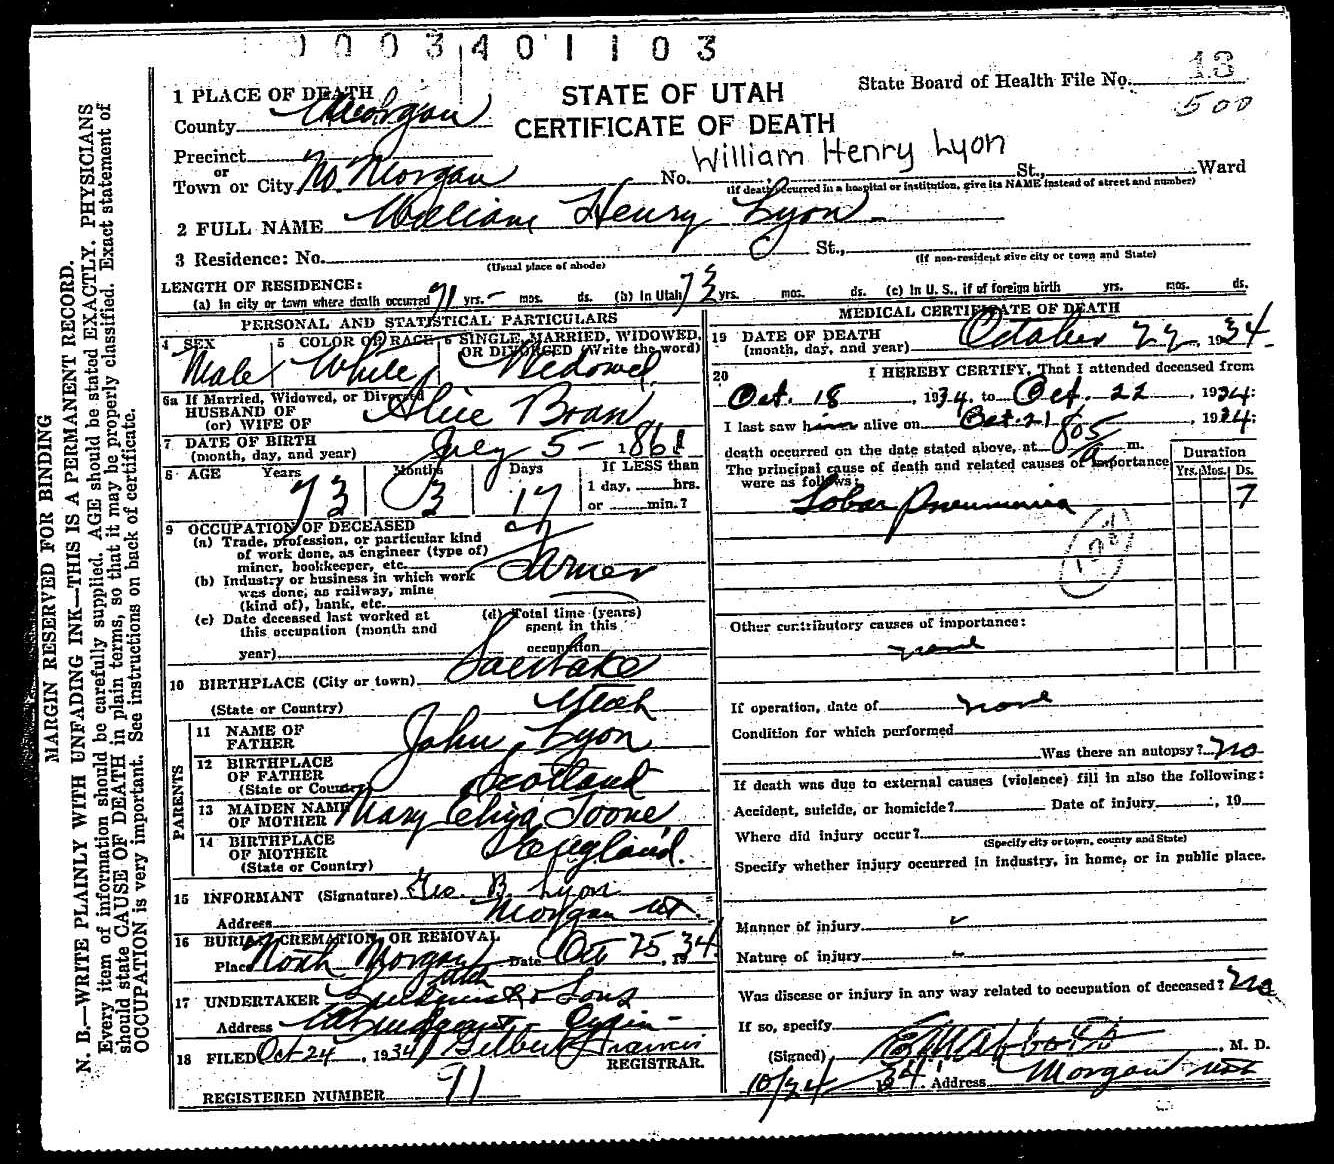 0003401103
1 PLACE OF DEATH
County Morgan
Precinct
or
Town or City No. Morgan
STATE OF UTAH
CERTIFICATE OF DEATH
State Board of Health File No. 13
500
William Henry Lyon
No. St., Ward
(If death occurred in a hospital or institution, give its NAME instead of street and number)
2 FULL NAME William Henry Lyon
3 Residence: No. St.,
(Usual place of abode) (If non-resident give city or town and State)
LENGTH OF RESIDENCE:
(a) In city or town where death occurred 71 yrs. - mos. ds. (b) In Utah 73 yrs. mos. ds. (c) In U. S., if of foreign birth yrs. mos. ds.
PERSONAL AND STATISTICAL PARTICULARS
4 SEX Male
5 COLOR OR RACE White
6 SINGLE, MARRIED, WIDOWED, OR DIVORCED (Write the word) Widowed
6a If Married, Widowed, or Divorced
HUSBAND OF
(or) WIFE OF Alice
7 DATE OF BIRTH
(month, day, and year) July 5 - 1861
8 AGE Years Months Days If LESS than
73 3 17 1 day, hrs.
or min.?
9 OCCUPATION OF DECEASED
(a) Trade, profession, or particular kind
of work done, as engineer (type of)
miner, bookkeeper, etc. Farmer
(b) Industry or business in which work
was done, as railway, mine
(kind of), bank, etc.
(c) Date deceased last worked at
this occupation (month and
year)
(d) Total time (years)
spent in this
occupation
10 BIRTHPLACE (City or town) Salt Lake
(State or Country) Utah
PARENTS
11 NAME OF
FATHER John Lyon
12 BIRTHPLACE
OF FATHER
(State or Country) Scotland
13 MAIDEN NAME
OF MOTHER Mary Eliza Toone
14 BIRTHPLACE
OF MOTHER
(State or Country) England.
15 INFORMANT (Signature) Geo. B. Lyon
Address Morgan Ut.
16 BURIAL, CREMATION, OR REMOVAL
Place North Morgan Date Oct 25, 1934
Utah
17 UNDERTAKER & Sons
Address Ogden
18 FILED Oct 24, 1934 Gilbert Francis
REGISTRAR.
REGISTERED NUMBER 71
MEDICAL CERTIFICATE OF DEATH
19 DATE OF DEATH
(month, day, and year) October 22, 1934
20 I HEREBY CERTIFY, That I attended deceased from
Oct. 18, 1934, to Oct. 22, 1934:
I last saw him alive on Oct. 21, 1934;
death occurred on the date stated above, at 805 a m.
The principal cause of death and related causes of importance
were as follows:
Duration
Yrs. Mos. Ds.
Lobar Pneumonia 7
Other contributory causes of importance:
none
If operation, date of none
Condition for which performed
Was there an autopsy? no
If death was due to external causes (violence) fill in also the following:
Accident, suicide, or homicide? Date of injury , 19
Where did injury occur?
(Specify city or town, county and State)
Specify whether injury occurred in industry, in home, or in public place.
Manner of injury
Nature of injury
Was disease or injury in any way related to occupation of deceased? no
If so, specify
(Signed) , M. D.
10/24 1934 Address Morgan Utah
MARGIN RESERVED FOR BINDING
N. B.—WRITE PLAINLY WITH UNFADING INK—THIS IS A PERMANENT RECORD.
Every item of information should be carefully supplied. AGE should be stated EXACTLY. PHYSICIANS
should state CAUSE OF DEATH in plain terms, so that it may be properly classified. Exact statement of
OCCUPATION is very important. See instructions on back of certificate.